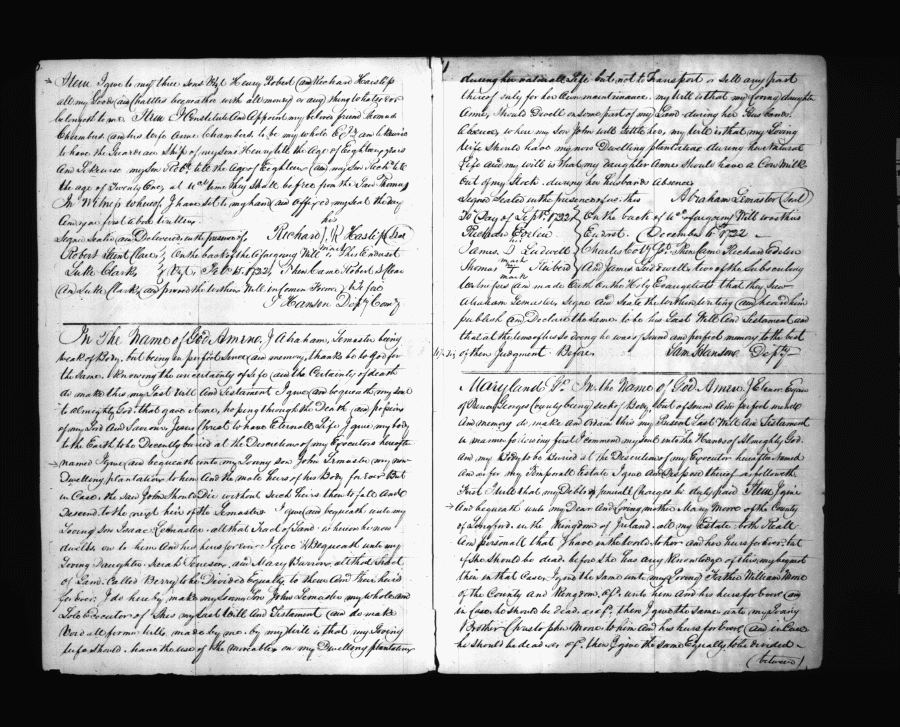 Item I give to my three sons Viz.t Henry Robert and Richard Haislip
all my Goods and Chattles bequeather with all money or any thing whatsoever
belongest to me. Item I Constitute And Appoint my beloved friend Thomas
Chambers and his Wife Anne Chambers to be my whole Ex.rs and I desire
to have the Guardian Ship of my sons Henry till the Age of Eighteen years
And Likewise my son Rob.t till the Age of Eighteen and my son Rich.d till
the age of Twenty One, at w.ch time they Shall be free from the Said Thomas
In Witness whereof I have set to my hand and Affixed my seal the day
And year first above written
his
Signed Sealed and Delivered in the presence of Richard R Haislip (Seal
mark
Robert Clare On the back of the aforegoing Will is Thus Endorst
Luke Clark Viz.t Feb. 15. 1722. Then Came Robert Clare
And Luke Clark and proved the within Will in Comon Form Before
Hanson Dep.ty Com.y
In The Name of God Amen. I Abraham Lemaster being
weak of Body, but being in perfect Sence and memory, thanks be to god for
the Same. & Knowing the uncertainty of Life and the Certainty of death
do make this my Last Will And Testament I give and bequeath my soul
to almighty God that gave it me, hoping through the Death and passion
of my Lord And Saviour Jesus Christ to have Eternall Life I give my body
to the Earth to be Decently buried at the Descretion of my Executors hereafter
named I give and bequeath unto my Loving son John Lemaster my now
Dwelling plantation to him And the male heirs of his Body for ever But
in Case the said John Should Die without Such heirs then to fall And
Descend to the next heir of the Lemasters I give and bequeath unto my
Loving Son Isaac Lemaster all that Tract of Land whereon he now
dwells on to him And his heirs for ever I give & Bequeath unto my
Loving Daughter Sarah and Mary Burrow all that Tract
of Land Called Berry to be Divided Equally to them And Their heirs
for Ever. I do hereby make my Loving Son John Lemaster my whole and
Sole Executor of This my Last Will And Testament and do make
Void all former Wills made by me. by my Will is that my Loving
wife Should have the use of the moveables on my Dwelling plantation
during her naturall Life but not to Transport or Sell any part
thereof only for her Own maintainance. my Will is that my Loving daughter
Anne, Should Dwell on some part of my Land during her Husbands
Absence, where my Son John will Settle her, my Will is that my Loving
Wife Should have my now Dwelling plantation during her Natural
Life And my will is that my Daughter Anne Should have a Cow Milk
Out of my Stock during her husbands absence
Signed Sealed in the presence of us this Abraham Lemaster (Seal)
10 Day of Sept.r 1722 On the back of the aforegoing Will was thus
Richard Edelen Endorst. December 6 1722
his
James D Ludwell Charles County Sc.t Then Came Richard Edelen
mark
Thomas And James Ludwell two of the Subscribing
mark
Witnesses and made Oath on the Holy Evangelists that they Saw
Abraham Lemaster Signe And Seale the within writing and heard him
publish and Declare the same to be his Last Will And Testament and
that at the time of his So doing he was of Sound and perfect memory to the best
of their Judgment Before Sam Hanson Dep.ty
Maryland Sc. In the Name of God Amen. I Elinor
of Prince Georges County being sick of Body, but of sound And perfect mind
And memory do make and Ordain this my present Last Will And Testament
in manner following first I commend my Soul into the Hands of Almighty God
And my Body to be Buried at the Descretion of my Executor hereafter Named
And as for my Temporall Estate I give And Dispose thereof as followeth
First I will that my Debts & funerall Charges be duly paid Item I give
And bequeath unto my Dear And Loving mother Mary More of the County
of Longford in the Kingdom of Ireland all my Estate both Reall
And personall that I have in the World to her and her heirs for ever but
if She Should be dead before She has any Knowledge of this my bequest
then in that Case I give the Same unto my Loving Father William More
of the County and Kingdom af.d unto him And his heirs for ever and
in Case he Should be dead as af.d then I give the same unto my Loving
Brother Christopher More to him And his heirs for ever and in Case
he Should be dead as af.d then I give the same Equally to be divided
(between)